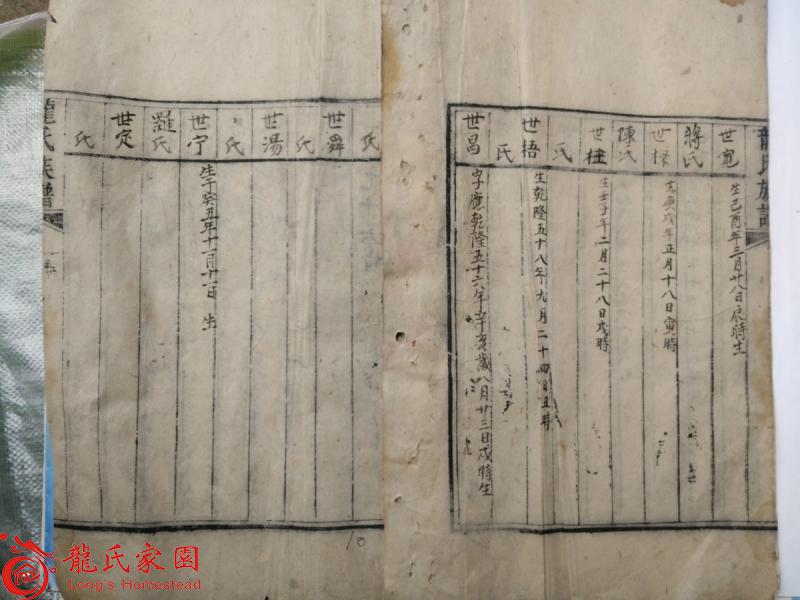 龍氏族譜
世寬 生己酉年三月廿八日辰時生
蔣氏
世樑 生庚戌年正月十八日寅時
陳氏
世柱 生壬子年二月二十八日戌時
氏
世梧 生乾隆五十八年九月二十四日丑時
氏
世昌 字應乾隆五十六年辛亥歲八月廿三日戌時生
氏
世舜
氏
世湯
氏
世宁 生于癸五年十一月十一日 生
羅氏
世定
氏
龍氏族譜
10
龍氏家園
Long's Homestead